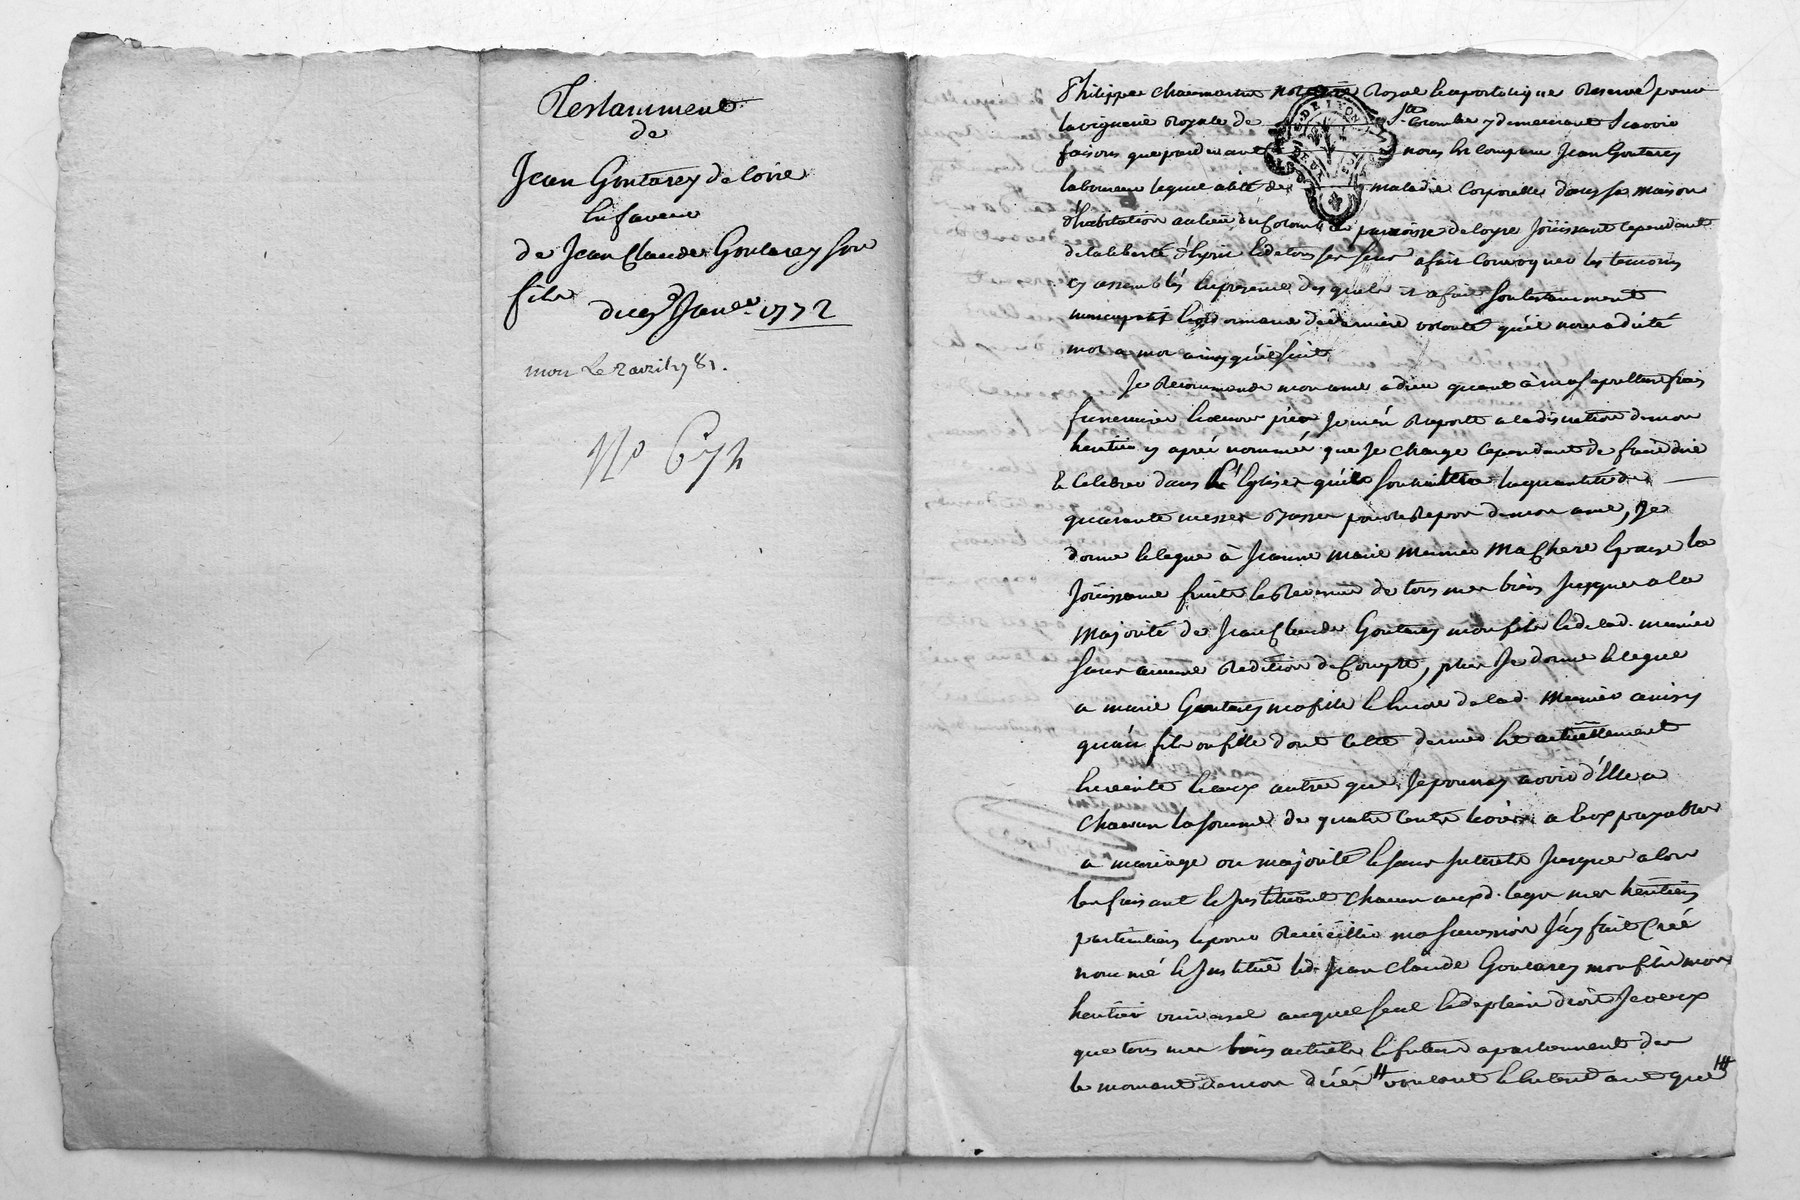 Testamment
de
Jean Goutarey de loire
En faveur
de Jean Claude Goutarey son
fils
du 9 Janer. 1772
mort Le 2 avril 1781.
No 674
Philippe Chaumartin notaire Royal et apostolique Reservé pour
la viguerie Royale de Ste Colombe y demeurant Scavoir
faisons que pardevant nous Est Comparu Jean Goutarey
laboureur lequel alité de maladie Corporelle dans sa maison
d'habitation au lieu du Colombet paroisse de loyre Joüissant Cependant
de la liberté d'Esprit Et de tous ses sens a fait Convoquer les temoins
Cy assemblés En presence desquels il a fait son testamment
nuncupatif Et ordonnance de derniere volonté qu'il nous a dicté
mot a mot ainsy qu'il suit
Je Recommande mon ame a dieu quant à mes frais
funeraires Et œuvres pies Je m'en Raporte a la discretion de mon
heritier cy aprés nommé que Je charge Cependant de faire dire
Et Celebrer dans l'Eglise qu'il souhaittera la quantité de
quarante messes basses pour le Repos de mon ame, Je
donne Et legue à Jeanne Marie Meunier Ma Chere Epouse la
Joüissance fruits Et Revenus de tous mes biens Jusques a la
Majorité de Jean Claude Goutarey mon fils Et de lad. meunier
sans aucune Redition de Compte, plus Je donne Et legue
a marie Goutarey ma fille Et encore de lad. Meunier ainsy
qu'au fils ou fille dont Cette derniere Est actuellement
Enceinte Et aux autres que Je pourrois avoir d'Elle a
Chacun la somme de quatre Cents livres a Eux payables
a mariage ou majorité Et sans Interets Jusques alors
En faisant Et Instituant Chacun auxd. legs mes heritiers
particuliers Et pour Recueillir ma succession J'ay fait Créé
nommé Et Institué led. Jean Claude Goutarey mon fils mon
heritier universel auquel seul Et de plein droit Je veux
que tous mes biens actuels Et futurs apartiennent des
le moment de mon décés voulant Et Entendant que